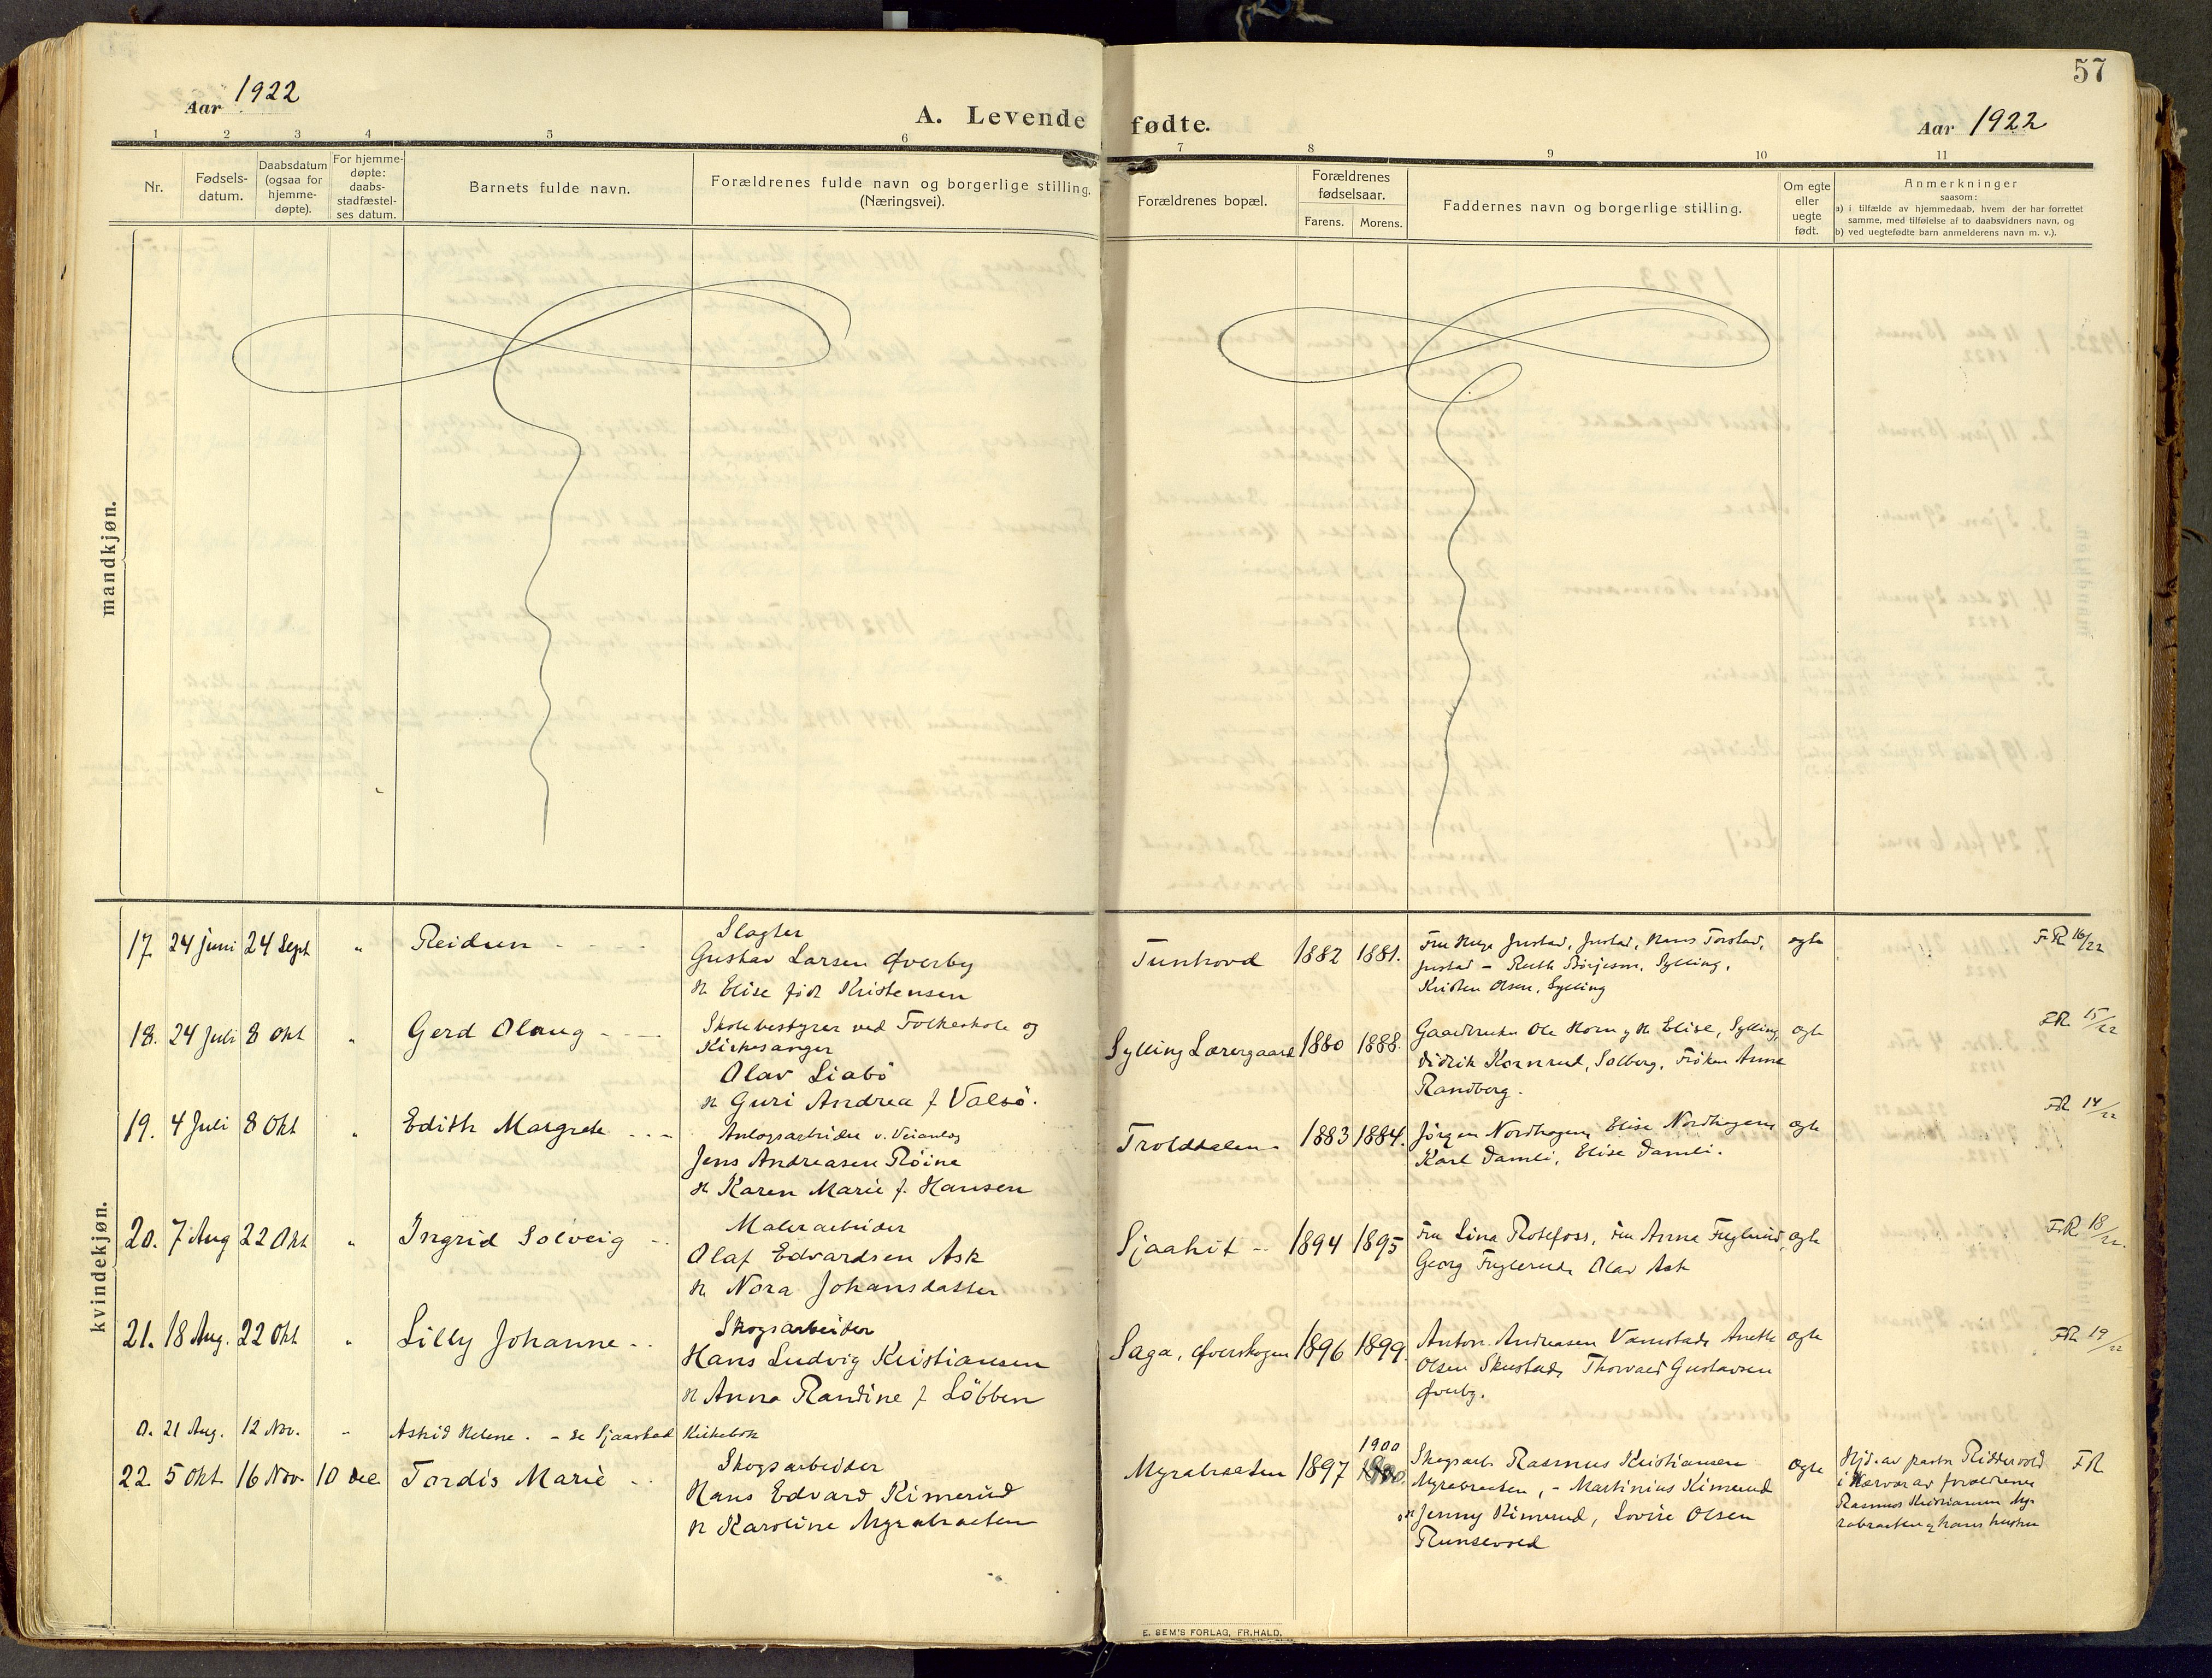 57
Aar 1922
A. Levende fødte.
Aar 1922
1 2 3 4 5 6 7 8 9 10 11
Nr.
Fødsels-
datum.
Daabsdatum
(ogsaa for
hjemme-
døpte).
For hjemme-
døpte:
daabs-
stadfæstel-
ses datum.
Barnets fulde navn.
Forældrenes fulde navn og borgerlige stilling.
(Næringsvei).
Forældrenes bopæl.
Forældrenes
fødselsaar.
Farens. Morens.
Faddernes navn og borgerlige stilling.
Om egte
eller
uegte
født.
Anmerkninger
saasom:
a) i tilfælde av hjemmedaab, hvem der har forrettet
samme, med tilføielse af to daabsvidners navn, og
b) ved uegtefødte barn anmelderens navn m. v.).
mandkjøn.
kvindekjøn.
17. 24 juni 24 Sept " Reidun
Slagter
Gustav Larsen Øverby
H. Elise født Kristensen
Tunhovd 1882 1881.
Justad, Justad, Hans Torstad,
Justad - Ruth Börjeson, Sylling,
Kristen Olsen, Sylling
egte
FR 16/22
18. 24 Juli 8 Okt " Gerd Olaug
Skolebestyrer ved Folkeskole og
Kirkesanger
Olav Liabö
H. Guri Andrea f Valsö.
Sylling Lærergaard 1880 1888.
Gaardbruker Ole Horn og H. Elise, Sylling,
Didrik Kornrud, Solberg, Fröken Anna
Randberg.
egte
FR 15/22
19. 4 Juli 8 Okt " Edith Margrete
Anlægsarbeider v. Veianlæg
Jens Andreasen Röine
H. Karen Marie f. Hansen
Troldtalen 1883 1884.
Jörgen Nordhagen, Elise Nordhagen
Karl Damli, Elise Damli.
egte
FR 14/22
20. 7 Aug 22 Okt " Ingrid Solveig
Malerarbeider
Olaf Edvardsen Ask
H. Nora Johansdatter
Sjaahit 1894 1895
Fru Lina Rotefoss, Fru Anna Fuglerud,
Georg Fuglerud, Olav Ask
egte
FR 18/22.
21. 18 Aug. 22 Okt " Lilly Johanne
Skogsarbeider
Hans Ludvig Kristiansen
H. Anna Randine f Löbben
Saga, Øverskogen 1896 1899.
Anton Andreasen Vamstad, Anette
Olsen Skustad, Thorvald Gustavsen
Øverby.
egte
FR 19/22
0. 21 Aug. 12 Nov. " Astrid Helene. - se Sjaastad Kirkebok
22. 5 Okt. 16 Nov. 10 Dec Tordis Marie
Skogsarbeider
Hans Edvard Kimerud
H. Karoline Myrabraaten
Myrabraaten 1897 1900
Skogsarb. Rasmus Kristiansen
Myrabraaten, - Martinius Kimerud
Jenny Kimerud, Lovise Olsen
Runsevold
egte
Hjd. av pastor Riddervold
i Nærvær av forældrene
Rasmus Kristiansen My-
rabraaten og hans hustru
FR
E. SEM'S FORLAG, FR.HALD.